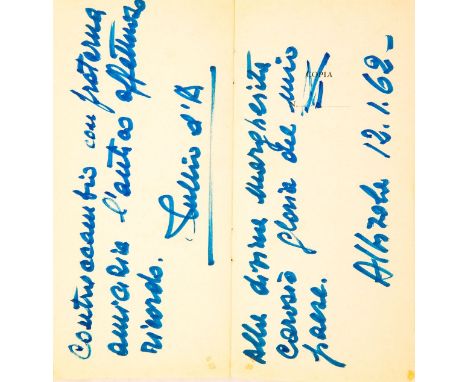 Alla divina Margherita
Carosio gloria del mio
paese.
COPIA
Albisola 12.1.62-
Contraccambio con fraterna
amicizia l'antico affettuoso
ricordo.
Tullio d'A